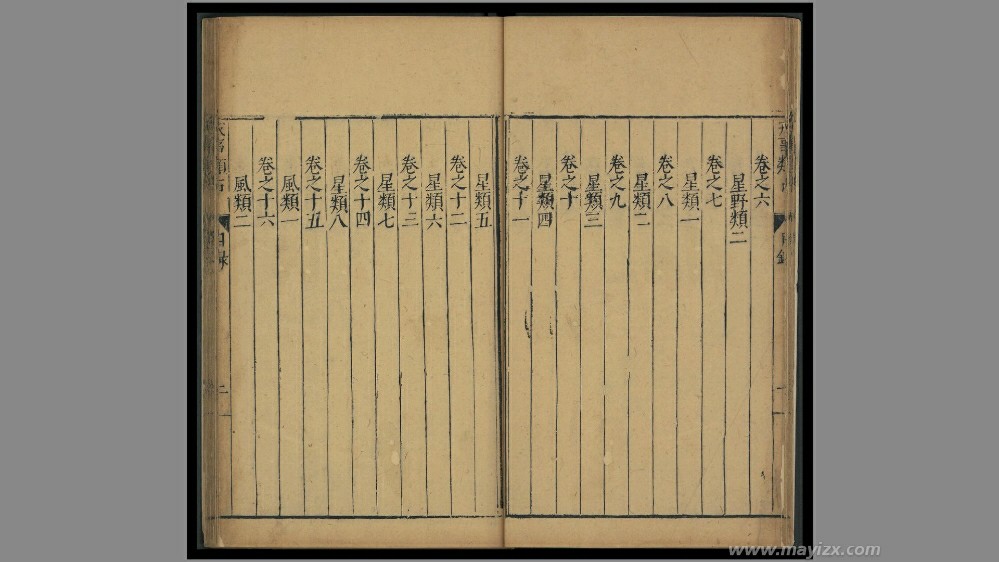 卷之六
星野類二
卷之七
星類一
卷之八
星類二
卷之九
星類三
卷之十
星類四
卷之十一
星類五
卷之十二
星類六
卷之十三
星類七
卷之十四
星類八
卷之十五
風類一
卷之十六
風類二
目錄
二
www.mayizx.com